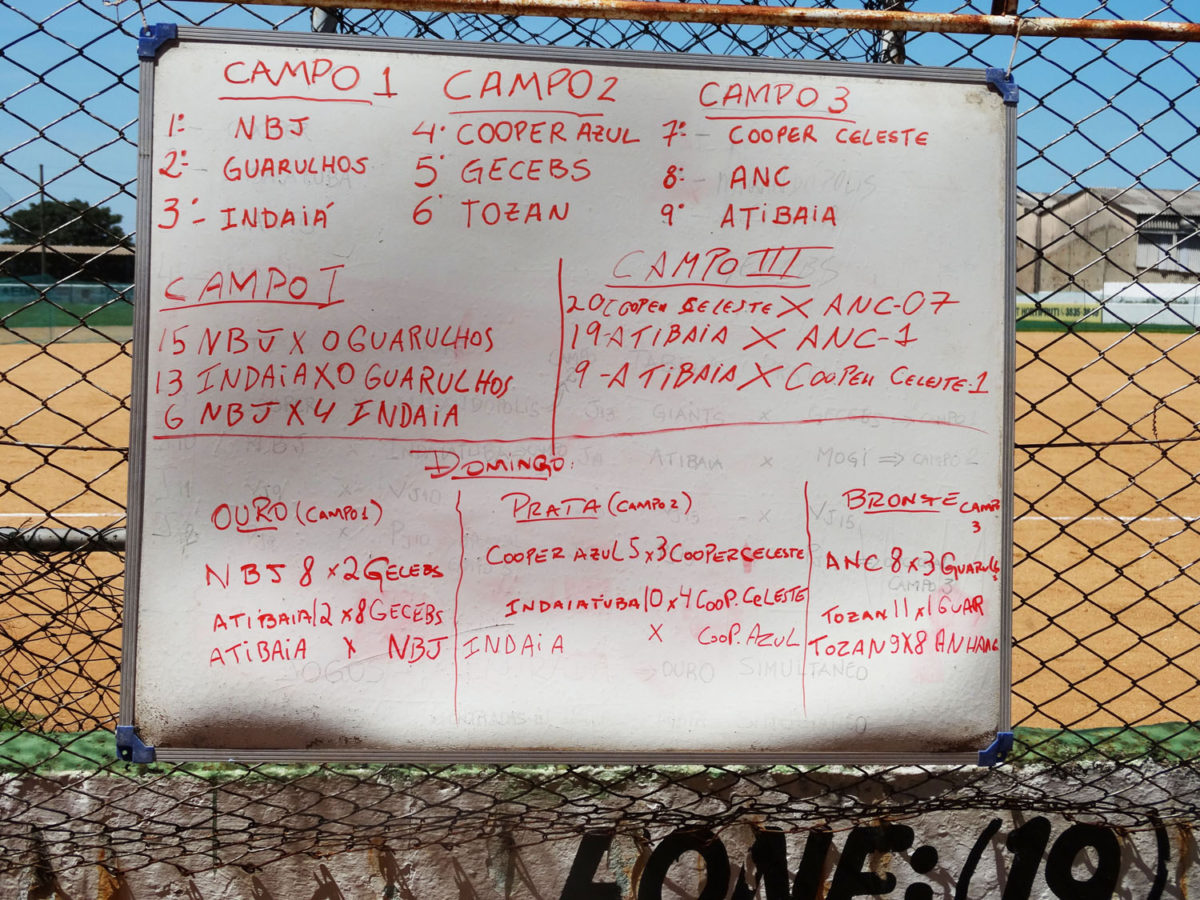 CAMPO 1
1º- NBJ
2º- GUARULHOS
3º- INDAIÁ
CAMPO 2
4º COOPER AZUL
5º GECEBS
6º TOZAN
CAMPO 3
7º- COOPER CELESTE
8º- ANC
9º ATIBAIA
CAMPO I
15 NBJ X 0 GUARULHOS
13 INDAIA X 0 GUARULHOS
6 NBJ X 4 INDAIA
CAMPO III
20 COOPER CELESTE X ANC-07
19-ATIBAIA X ANC-1
9-ATIBAIA X COOPER CELESTE-1
DOMINGO
OURO (CAMPO1)
NBJ 8 x 2 GECEBS
ATIBAIA 12 x 8 GECEBS
ATIBAIA X NBJ
PRATA (CAMPO2)
COOPER AZUL 5 x 3 COOPER CELESTE
INDAIATUBA 10 x 4 COOP. CELESTE
INDAIA X COOP. AZUL
BRONZE CAMPO 3
ANC 8 x 3 GUARULS
TOZAN 11 x 1 GUAR
TOZAN 9 X 8 ANHANG
J13 GIANTS x GECEBS
ATIBAIA x MOGI ⇒ CAMPO 2
CAMPO 3
JOGOS
→ OURO SIMULTANEO
FONE: (19)